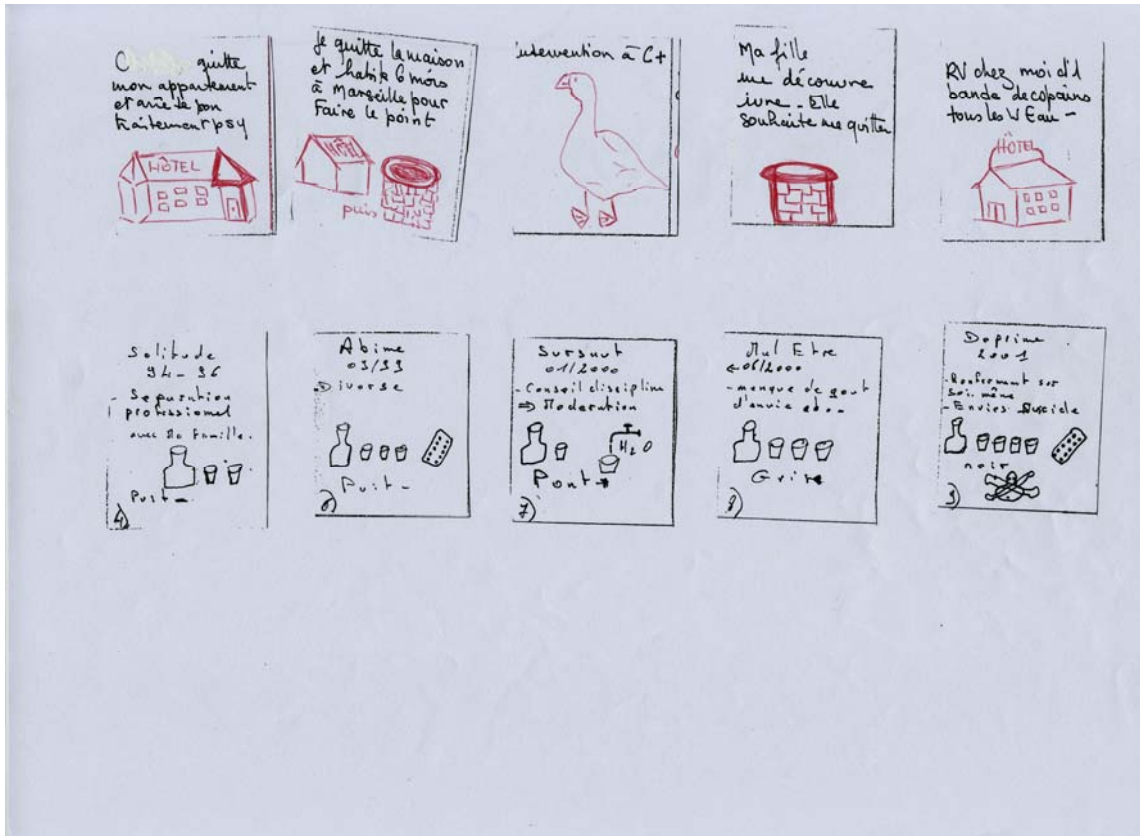 C quitte
mon appartement
et arrête son
traitement psy
HÔTEL
Je quitte la maison
et habite 6 mois
à Marseille pour
Faire le point
HÔTEL
puis
intervention à C+
Ma fille
me découvre
ivre - Elle
souhaite me quitter
RV chez moi d'1
bande de copains
tous les V Eau -
HÔTEL
Solitude
94 - 96
- Separation
professionel
avec Ma Famille.
Puit -
4)
Abime
03/99
- Divorse
Puit -
6)
Sursaut
01/2000
- Conseil discipline
⇒ Moderation
H2O
Pont
7)
Mal Etre
06/2000
- manque de gout
d'envie
8)
Deprime
2001
- Renfermant sur
soi. même
- Envies Suicide
noir
9)